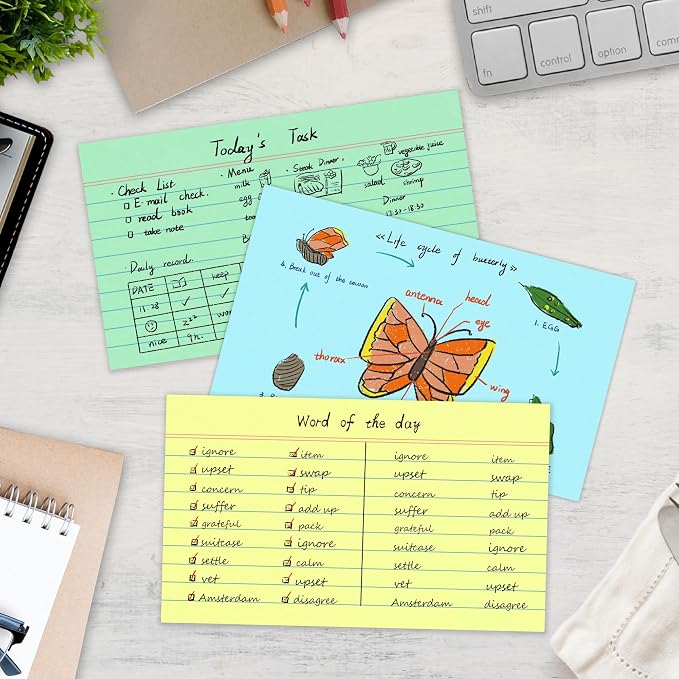 shift
fn
control
option
Today's Task
Check List
E-mail check.
read book
take note
Menu
milk
egg
Steak Dinner.
salad
vegetable juice
shrimp
Dinner
17:30-18:30
Daily record.
DATE
keep
11.28
zzz
nice
9h.
<<Life cycle of butterfly>>
4. Break out of the cocoon
antenna
head
eye
thorax
wing
1. EGG
Word of the day
ignore item ignore item
upset swap upset swap
concern tip concern tip
suffer add up suffer add up
grateful pack grateful pack
suitcase ignore suitcase ignore
settle calm settle calm
vet upset vet upset
Amsterdam disagree Amsterdam disagree